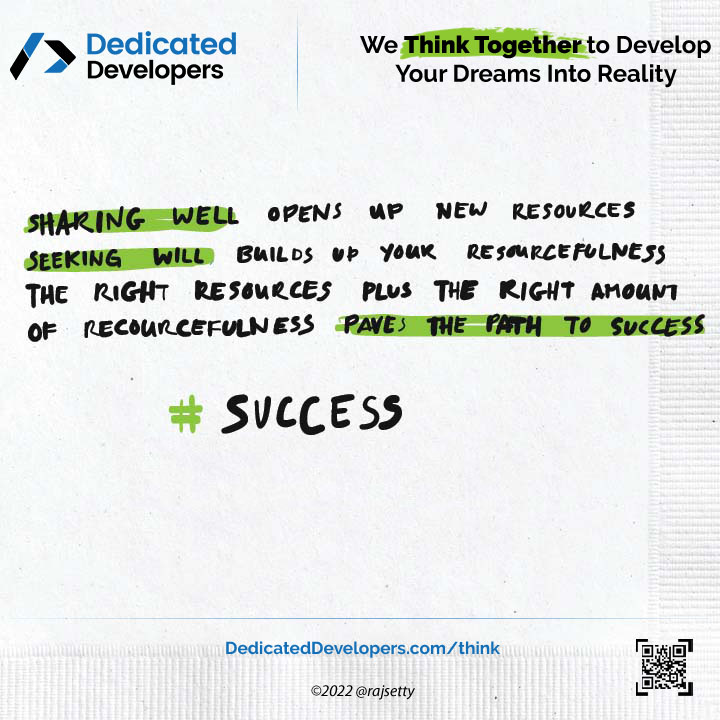 Dedicated
Developers
We Think Together to Develop
Your Dreams Into Reality
SHARING WELL OPENS UP NEW RESOURCES
SEEKING WILL BUILDS UP YOUR RESOURCEFULNESS
THE RIGHT RESOURCES PLUS THE RIGHT AMOUNT
OF RECOURCEFULNESS PAVES THE PATH TO SUCCESS
# SUCCESS
DedicatedDevelopers.com/think
©2022 @rajsetty